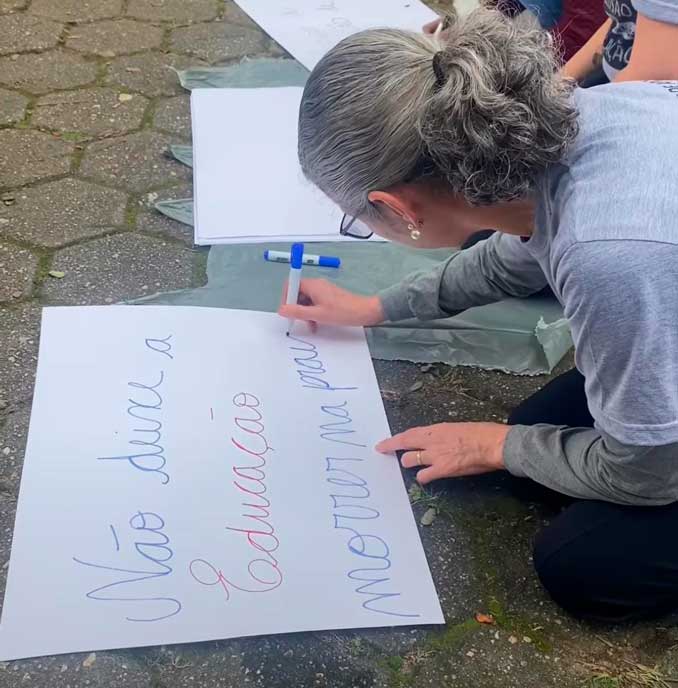 Não deixe a
Educação
morrer na prai